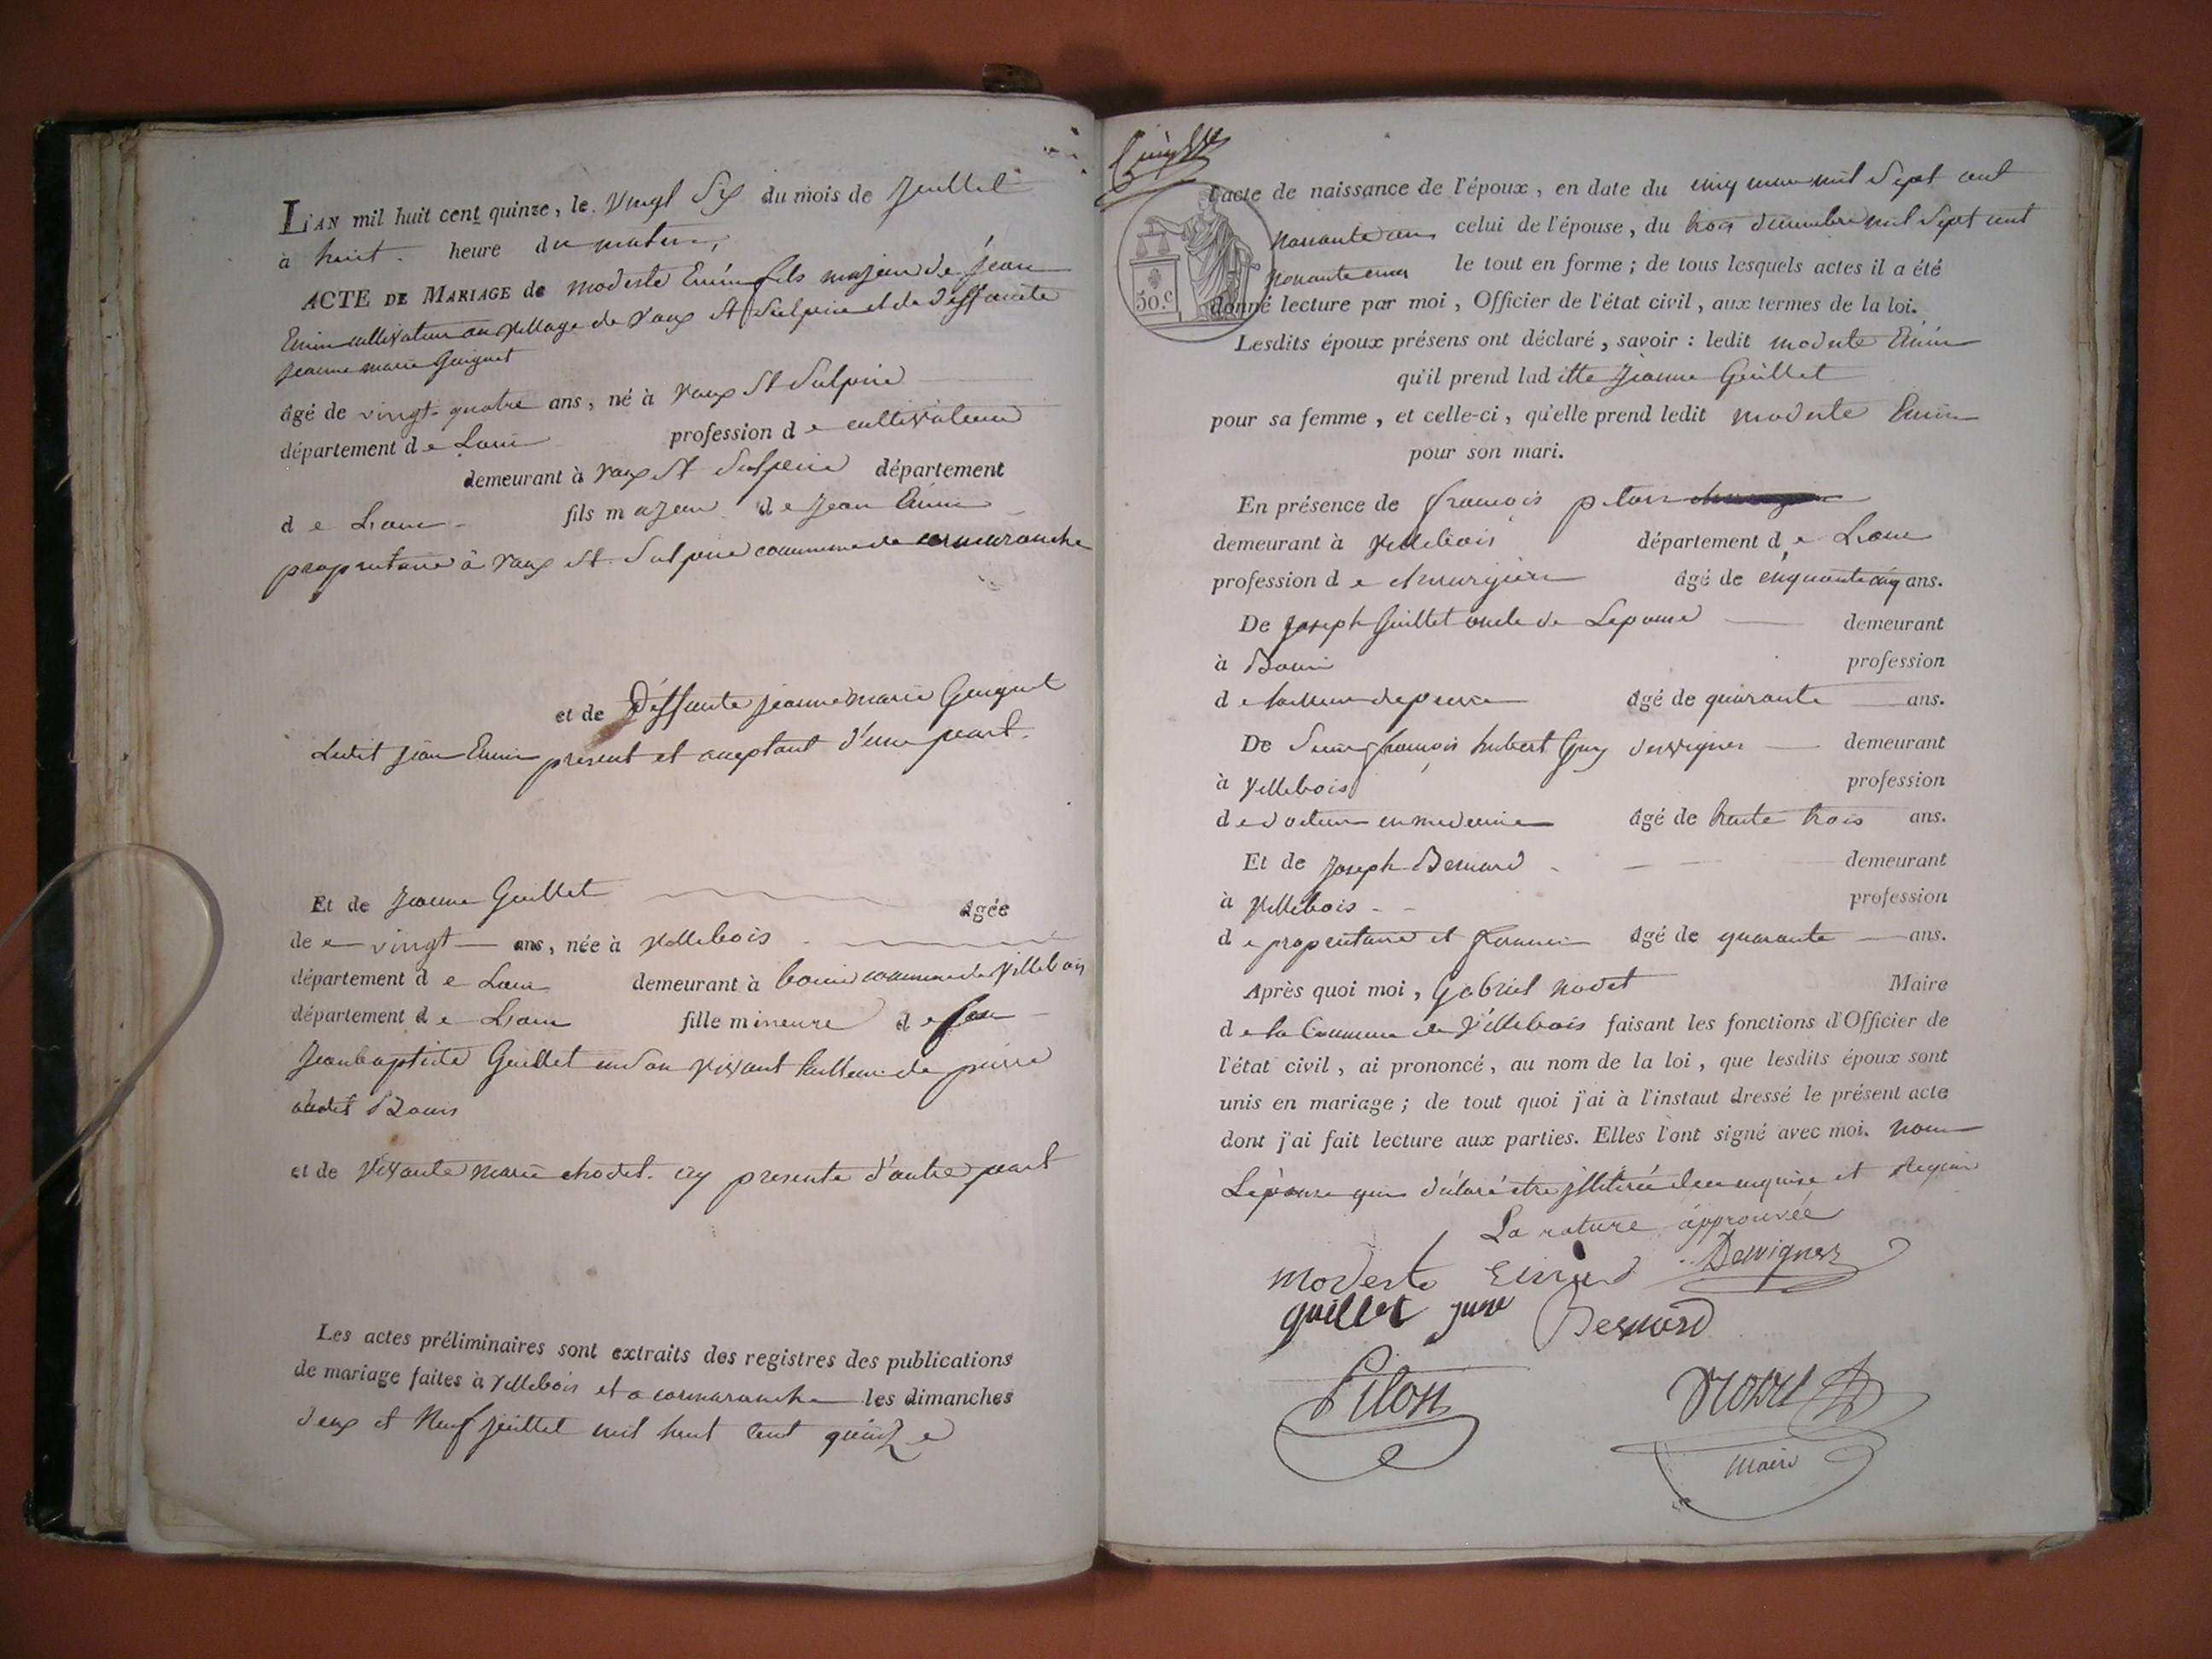 L'AN mil huit cent quinze, le vingt Six du mois de Juillet
à huit heure du matin,
ACTE DE MARIAGE de modeste Emin fils majeur de jean
Emin cultivateur au village de Vaux St Sulpice et de deffuncte
jeanne marie Guignet
âgé de vingt-quatre ans, né à Vaux St Sulpice
département de Lain profession de cultivateur
demeurant à Vaux St Sulpice département
de Lain fils majeur de jean Emin
propriétaire à Vaux St Sulpice commune de cormaranche
et de Déffunte jeanne marie Guignet
Ledit jean Emin présent et acceptant d'une part.
Et de Jeanne Guillet agée
de vingt ans, née à Villebois
département de Lain demeurant à bouis commune de Villebois
département de Lain fille mineure de feu
Jean baptiste Guillet en son vivant tailleur de pierre
audit Bouis
et de Vivante marie chodet cy presente d'autre part
Les actes préliminaires sont extraits des registres des publications
de mariage faites à Villebois et a cormaranche les dimanches
deux et Neuf juillet mil huit cent quinze
l'acte de naissance de l'époux, en date du cinq mil Sept cent
nonante un celui de l'épouse, du trois decembre mil Sept cent
nonante cinq le tout en forme; de tous lesquels actes il a été
50.c
donné lecture par moi, Officier de l'état civil, aux termes de la loi.
Lesdits époux présens ont déclaré, savoir : ledit modeste Emin
qu'il prend laditte Jeanne Guillet
pour sa femme, et celle-ci, qu'elle prend ledit modeste Emin
pour son mari.
En présence de françois pilon
demeurant à Villebois département de Lain
profession de chirurgien âgé de cinquante cinq ans.
De joseph Guillet oncle de Lepouse demeurant
à Bouis profession
de tailleur de pierre âgé de quarante ans.
De Sieur françois hubert Guy Dervignes demeurant
à Villebois profession
de docteur en medecine âgé de trente trois ans.
Et de joseph Bernard demeurant
à Villebois profession
de propriétaire et âgé de quarante ans.
Après quoi moi, Gabriel nodet Maire
de la Commune de Villebois faisant les fonctions d'Officier de
l'état civil, ai prononcé, au nom de la loi, que lesdits époux sont
unis en mariage; de tout quoi j'ai à l'instaut dressé le présent acte
dont j'ai fait lecture aux parties. Elles l'ont signé avec moi. non
Lépouse qui a déclaré être illitérée de ce enquise et requise
La rature approuvée
modeste Dervignes
guillet Bernard
Pilon Nodet
Maire